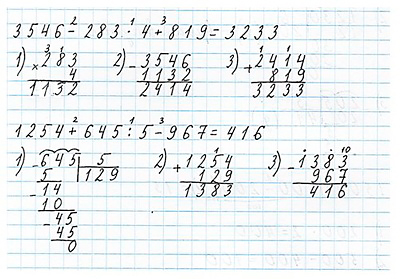 3546 - 283 · 4 + 819 = 3233
2 1 3
1) × 283
3 1
4
1132
2) - 3546
1132
2414
3) + 2414
1 1
819
3233
1254 + 645 : 5 - 967 = 416
2 1 3
1) - 645 5
5 129
- 14
10
- 45
45
0
2) + 1254
1
129
1383
3) - 1383
10
967
416